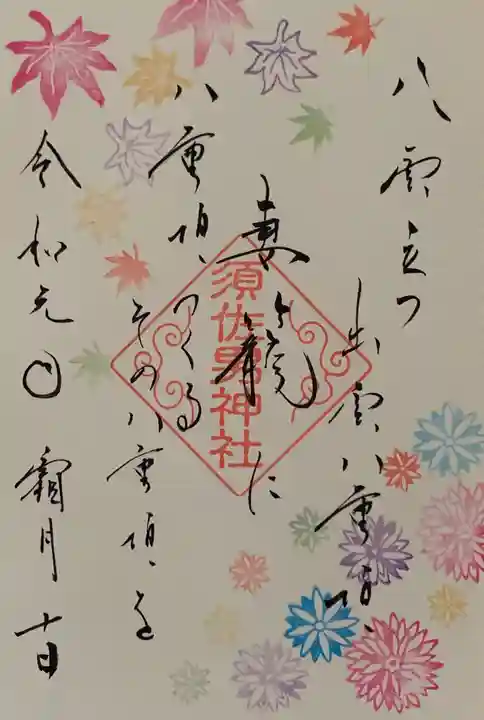 八雲立つ
出雲八重垣
妻籠に
八重垣つくる
その八重垣を
令和元年 霜月十日
須佐男神社